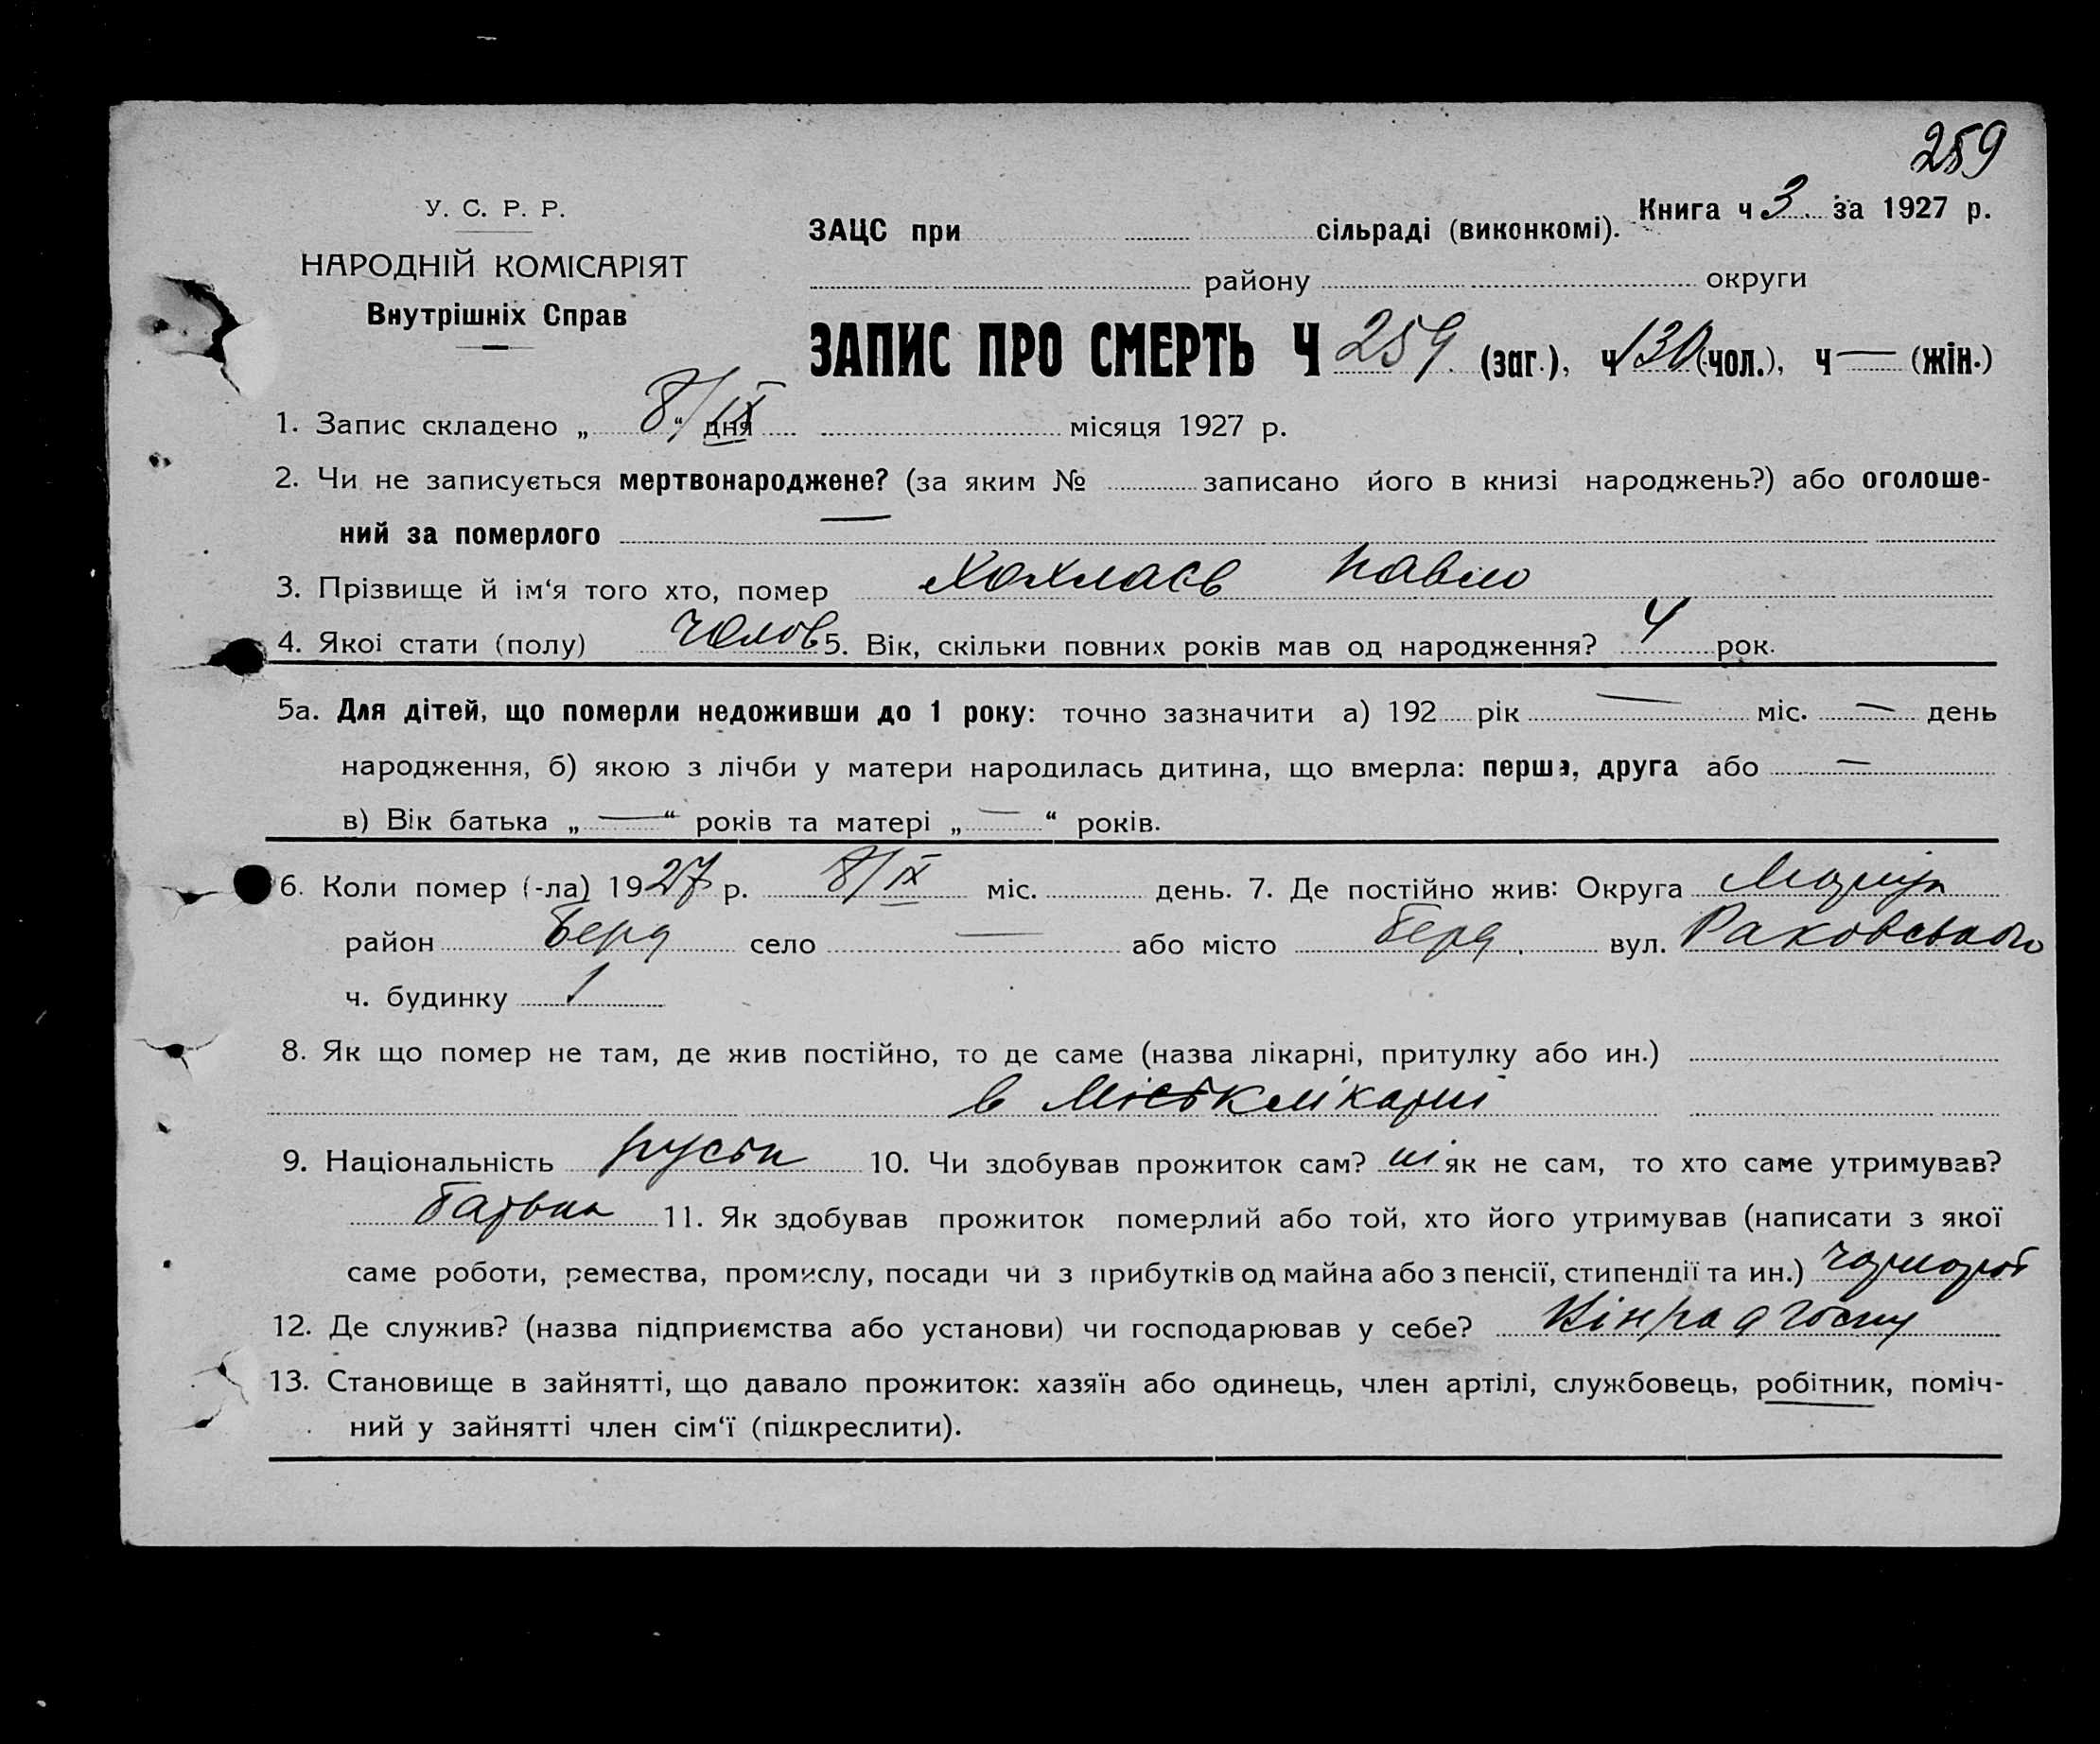 259
У. С. Р. Р.
НАРОДНІЙ КОМІСАРІЯТ
Внутрішніх Справ
Книга ч 3 за 1927 р.
ЗАЦС при сільраді (виконкомі).
району округи
ЗАПИС ПРО СМЕРТЬ Ч 259 (заг.), ч 130 (чол.), ч — (жін.)
1. Запис складено „ 8/IX “ дня місяця 1927 р.
2. Чи не записується мертвонароджене? (за яким № записано його в книзі народжень?) або оголоше-
ний за померлого —
3. Прізвище й ім‘я того хто, помер Хохлаєв Павло
4. Якої стати (полу) Чолов 5. Вік, скільки повних років мав од народження? 4 рок.
5а. Для дітей, що померли недоживши до 1 року: точно зазначити а) 192 рік — міс. — день
народження, б) якою з лічби у матери народилась дитина, що вмерла: перша, друга або —
в) Вік батька „ — “ років та матері „ — “ років.
6. Коли помер (-ла) 1927 р. 8/IX міс. день. 7. Де постійно жив: Округа
район Берд село — або місто Берд. вул. Раковського
ч. будинку 1
8. Як що помер не там, де жив постійно, то де саме (назва лікарні, притулку або ин.)
в Міськлікарні
9. Національність 10. Чи здобував прожиток сам? ні як не сам, то хто саме утримував?
батько 11. Як здобував прожиток померлий або той, хто його утримував (написати з якої
саме роботи, ремества, промислу, посади чи з прибутків од майна або з пенсії, стипендії та ин.) чорнороб
12. Де служив? (назва підприємства або установи) чи господарював у себе?
13. Становище в зайнятті, що давало прожиток: хазяїн або одинець, член артілі, службовець, робітник, поміч-
ний у зайнятті член сім‘ї (підкреслити).